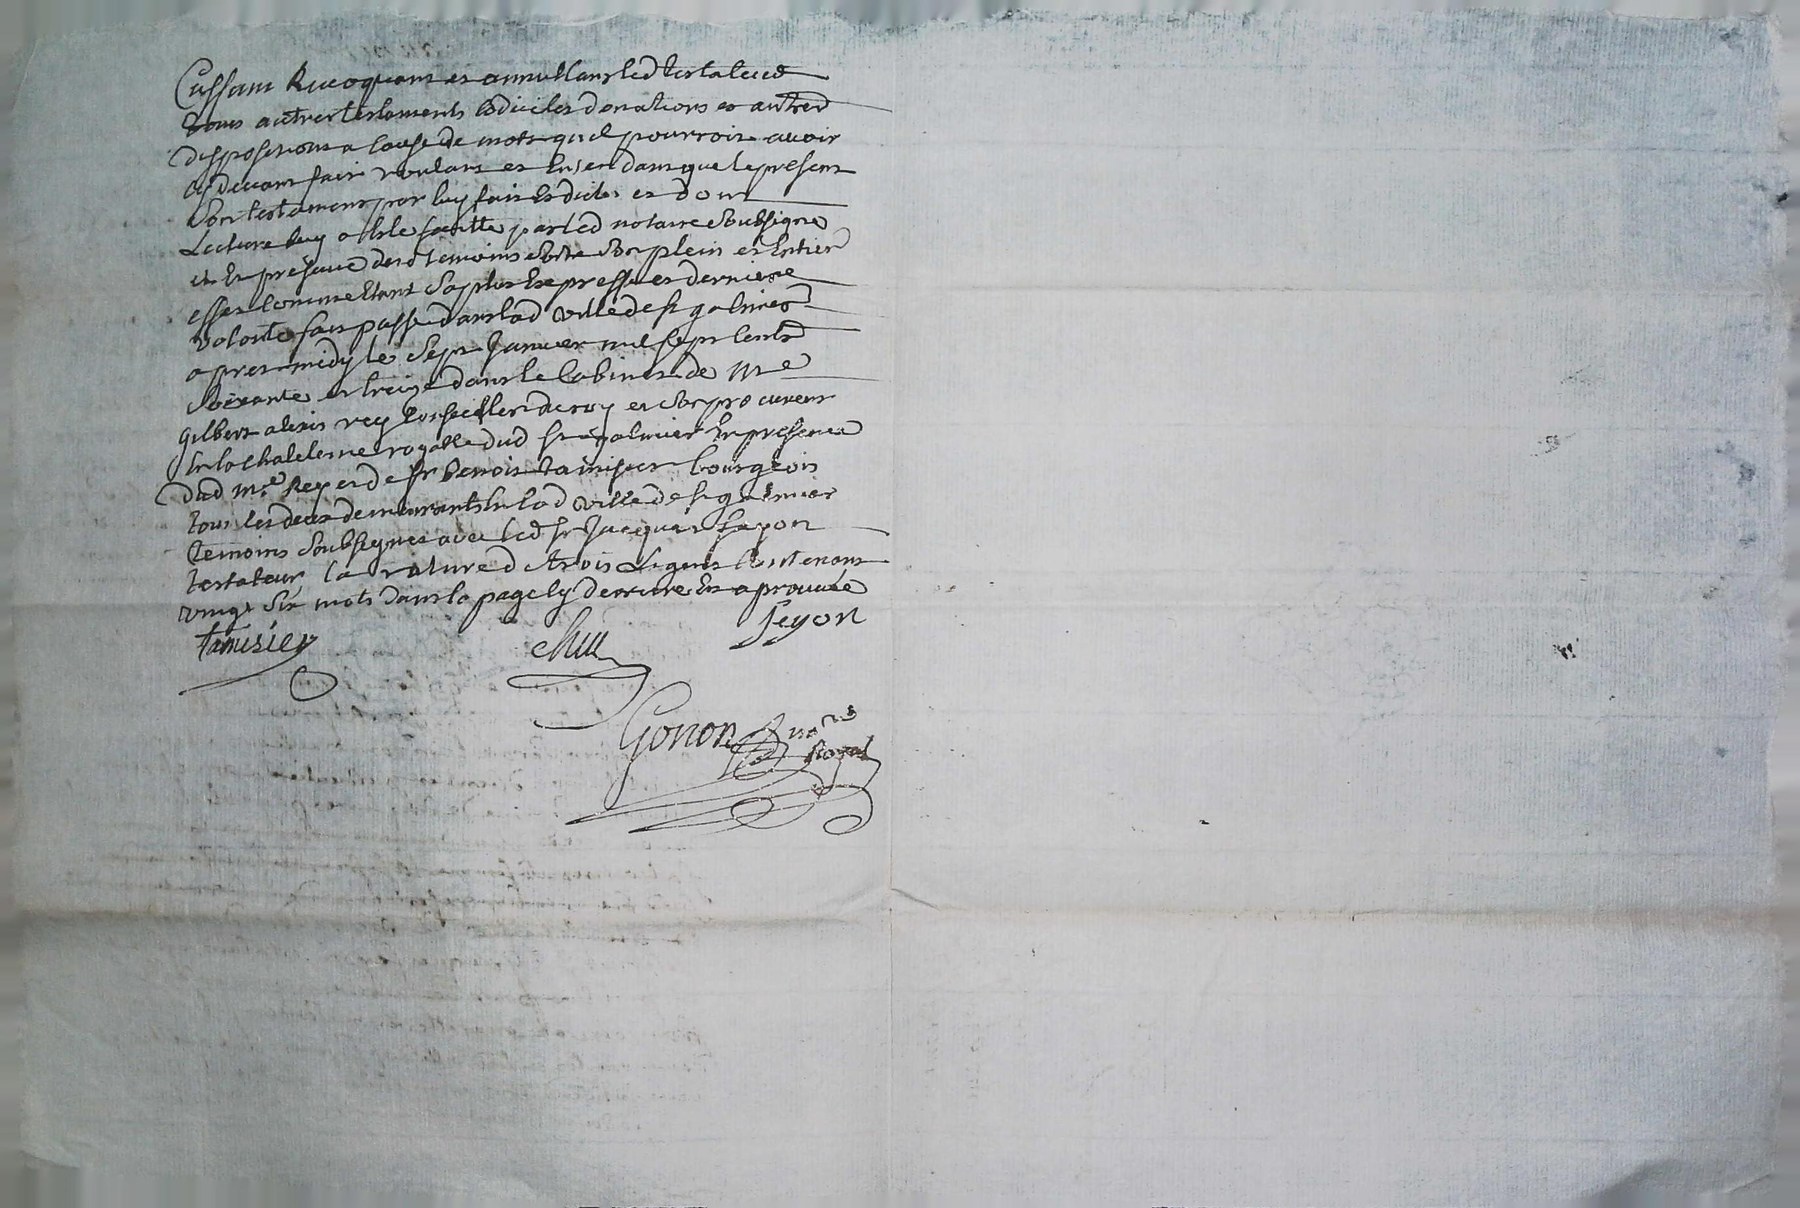 Cassant Revoquant et annullant led testateur
tous autres testaments Codiciles donations et autres
dispositions a Cause de mort quil pourroit avoir
cy devant fait voulant et Entendant que le present
Son testament par luy fait Et dicté et dont
Lecture luy a Esté faitte par led notaire Soubsigné
et En presence desd temoins Sorte Son plein et Entier
effet Comme Etant Sa plus Expresse et derniere
volonté fait passé dans lad ville de st galmier
apres midy le Sept Janvier mil sept Cents
Soixante et treize dans le Cabinet de Me
gilbert alexis rey Conseiller du roy et Son procureur
En la Chatelenie royalle dud st galmier En presence
dud Me Rey et de sr Benoit tamisier bourgeois
tous les deux demeurants En lad ville de st galmier
temoins Soubsignes avec led sr Jacques fayon
testateur la rature d trois Lignes Contenant
vingt Six mots dans la page cy derriere Est aprouvée
tamisier feyon
Gonon nore
Royal